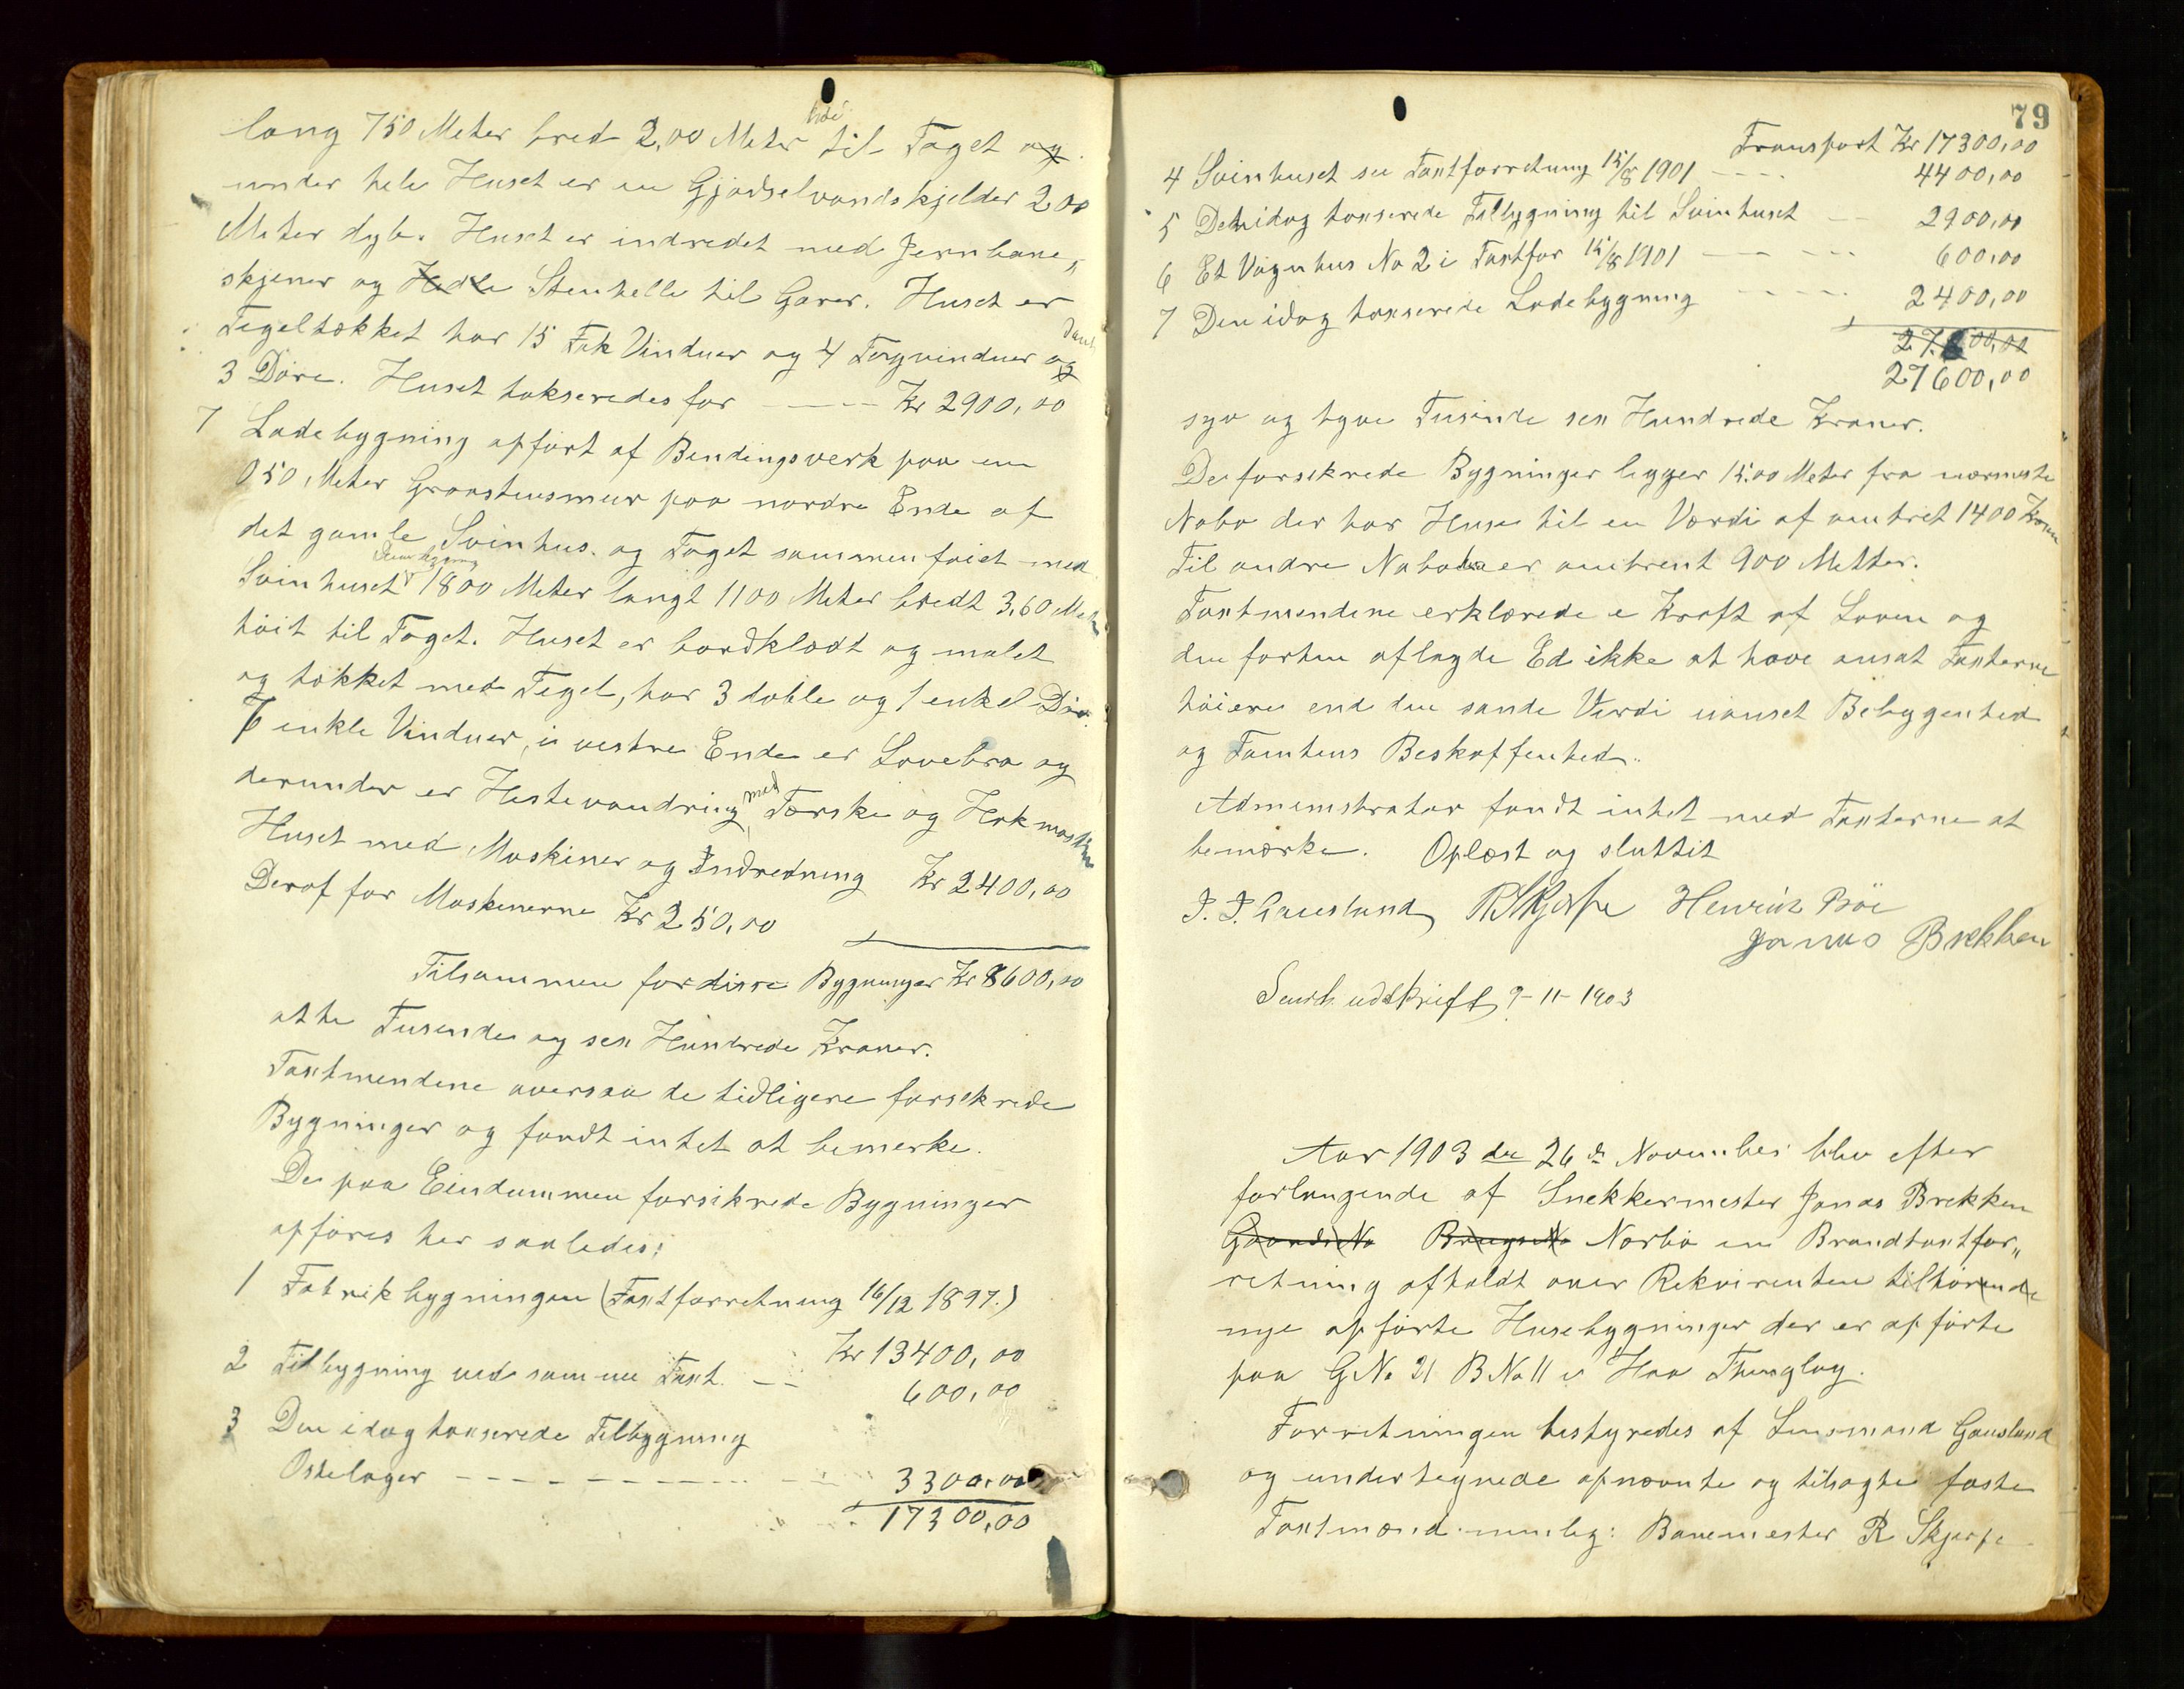 lang 750 Meter bred 2,00 Meter höi til Taget og
under hele Huset er en Gjödselvandskjelder 200
Meter dyb. Huset er indredet med Jernbane„
skjener og Hedle Stenhelle til Gaver. Huset er
Tegeltækket har 15 Fak Vinduer og 4 Tagvinduer og
3 Döre. Huset takseredes for — Kr 2900,00
7 Ladebygning opfört af Bindingsverk paa en
050 Meter Graastensmur paa nordre Ende af
det gamle Svinhus. og Taget sammenföiet med
Svinhuset 1800 Meter langt 1100 Meter bredt 3,60 Meter
höit til Taget. Huset er bordklædt og malet
og tækket med Tegel, har 3 doble og 1 enkel Dör.
7 enkle Vinduer, i vestre Ende er Lovebro og
derunder er Hestevandring med Tærske og Hakmaskin
Huset med Maskiner og Indredning Kr 2400,00
Deraf for Maskinerne Kr 250,00
Tilsammen for disse Bygninger Kr 8600,00
otte Tusende og sex Hundrede Kroner.
Taxtmendene oversaa de tidligere forsikrede
Bygninger og fandt intet at bemerke.
De paa Eindommen forsikrede Bygninger
opföres her saaledes;
1 Fabrikbygningen (Taxtforretning 16/12 1897.)
Kr 13400,00
2 Tilbygning ved samme Taxt. — 600,00
3 Den idag taxserede Tilbygning
Ostelager — 3300,00
17300,00
79
Transport Kr 17300,00
4 Svinhuset se Taxtforretning 15/8 1901 — 4400,00
5 Den idag taxserede Tilbygning til Svinhuset — 2900,00
6 Et Vognhus No 2 i Taxtfor 15/8 1901 — 600,00
7 Den idag taxserede Ladebygning — 2400,00
27600,00
syv og tyve Tusinde sex Hundrede Kroner.
De forsikrede Bygninger ligger 15.00 Meter fra nærmeste
Nabo der har Huse til en Værdi af omtret 1400 Kroner
Til andre Naboer er omtrent 900 Metter.
Taxtmendene erklærede i Kraft af Loven og
den forhen aflagde Ed ikke at have ansat Taxterne
höiere end den sande Verdi uanset Bebyggenhed
og Tomtens Beskaffenhed.
Administrator fandt intet med Taxterne at
bemærke. Oplæst og sluttet
J. J. Gausland R Skjerpe Henrik Böe
Jonas Brekken
Sendt udskrift 9-11-1903
Aar 1903 den 26de November blev efter
forlangende af Snekkermester Jonas Brekken
Gaards No Brugs No Nærbö en Brandtaxtfor„
retning afholdt over Rekvirenten tilhörende
nye opförte Husebygninger der er opförte
paa G No 21 B No 11 i Haa Thinglag.
Forretningen bestyredes af Lensmand Gausland
og undertegnede opnævnte og tilsagte faste
Taxtmænd nemlig: Banemester R Skjerpe